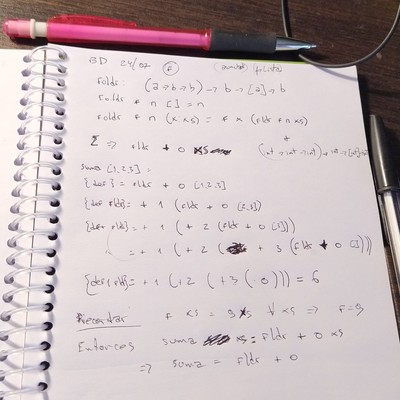 BD 24/02 F (acumular) f/lista
Foldr : (a → b → b) → b → [a] → b
Foldr f n [] = n
Foldr f n (x:xs) = f x (foldr f n xs)
+
Σ ⇒ foldr + 0 xs (int → int → int) → int → [int] → int
suma [1,2,3] =
{def} = foldr + 0 [1,2,3]
{def foldr} = + 1 (foldr + 0 [2,3])
{def foldr} = + 1 (+ 2 (foldr + 0 [3]))
= + 1 (+ 2 (+ 3 (foldr + 0 [])))
{def foldr} = + 1 (+ 2 (+ 3 (0))) = 6
Recordar f xs = g xs ∀ xs ⇒ f = g
Entonces suma xs = foldr + 0 xs
⇒ suma = foldr + 0